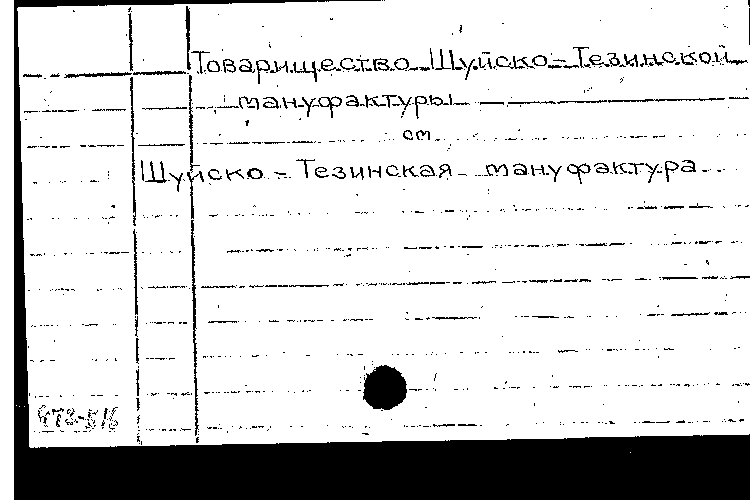 Товарищество Шуйско-Тезинской
мануфактуры
см.
Шуйско-Тезинская мануфактура
473-516